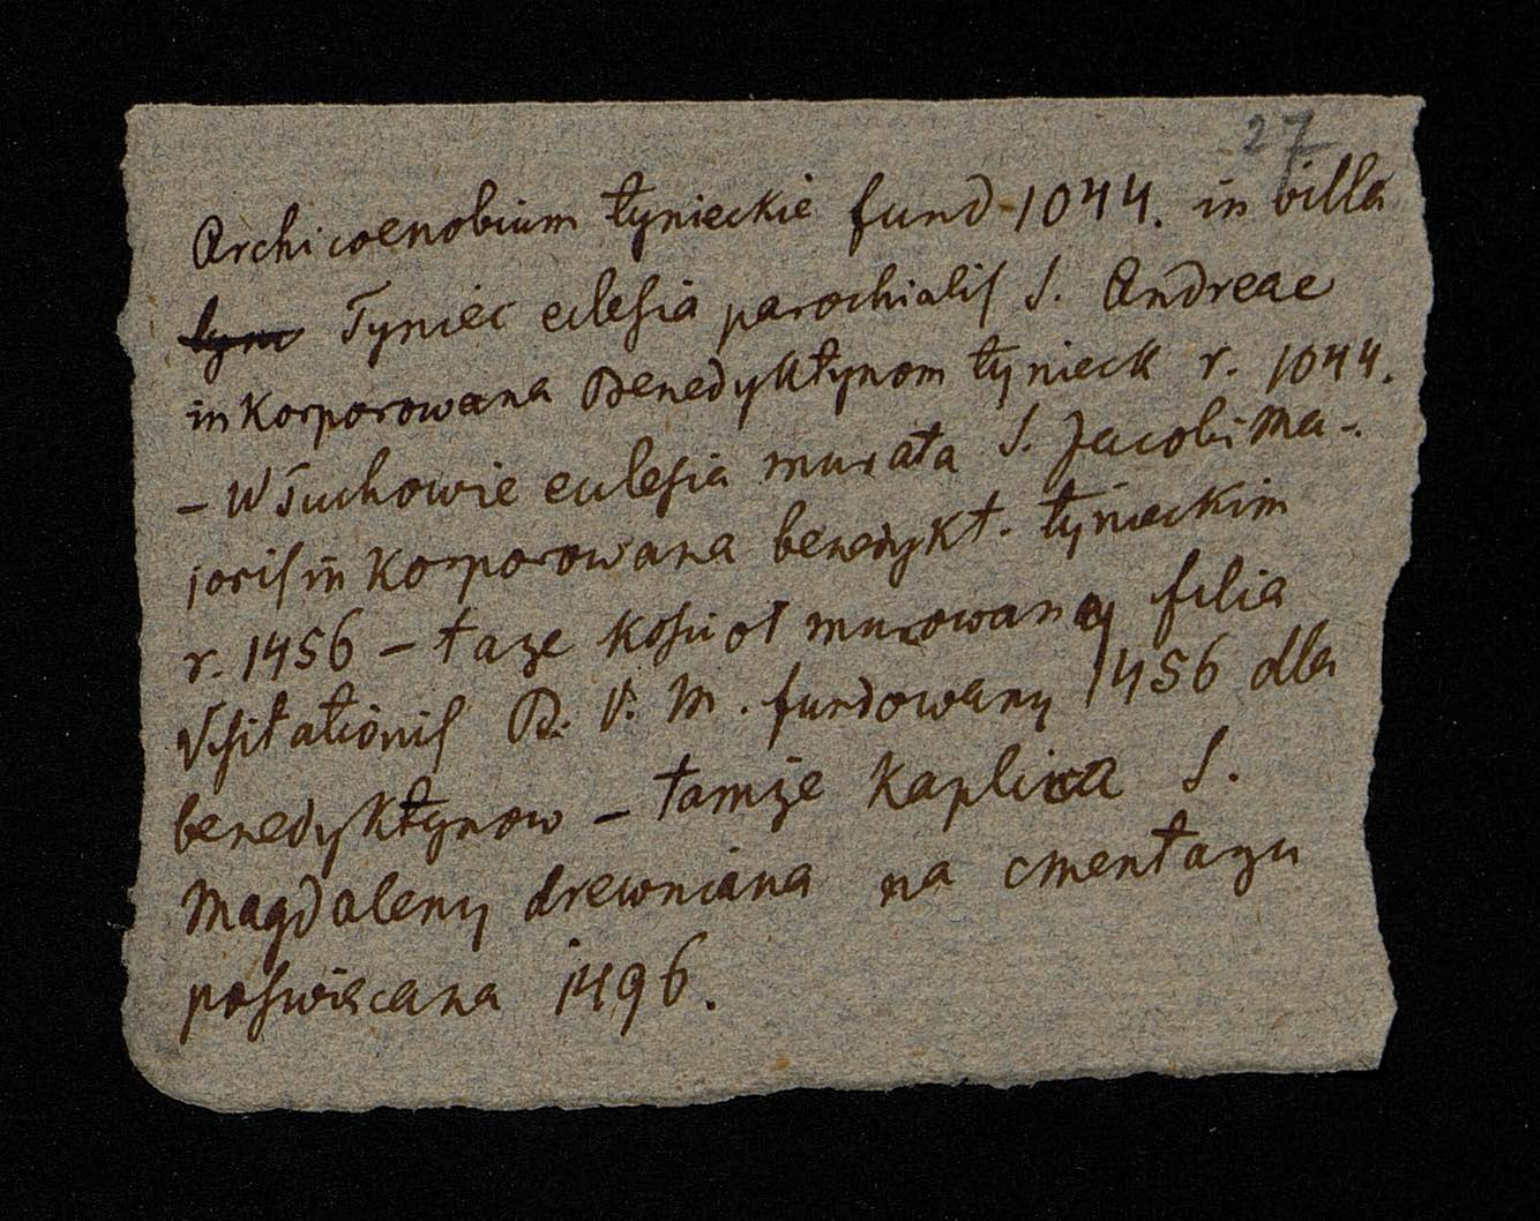 27
Archicoenobium tynieckie fund-1044. in villa
tyni Tyniec eclesia parochialis S. Andreae
inkorporowana Benedyktynom tynieck r. 1044.
– W Tuchowie eclesia murata S. Jacobi Ma-
joris inkorporowana benedykt. tynieckim
r. 1456 – taze kosciot murowany filia
Visitationis B. V. M. fundowany 1456 dla
benedyktynow – tamże kaplica S.
Magdaleny drewniana na cmentazu
poswiacana 1496.